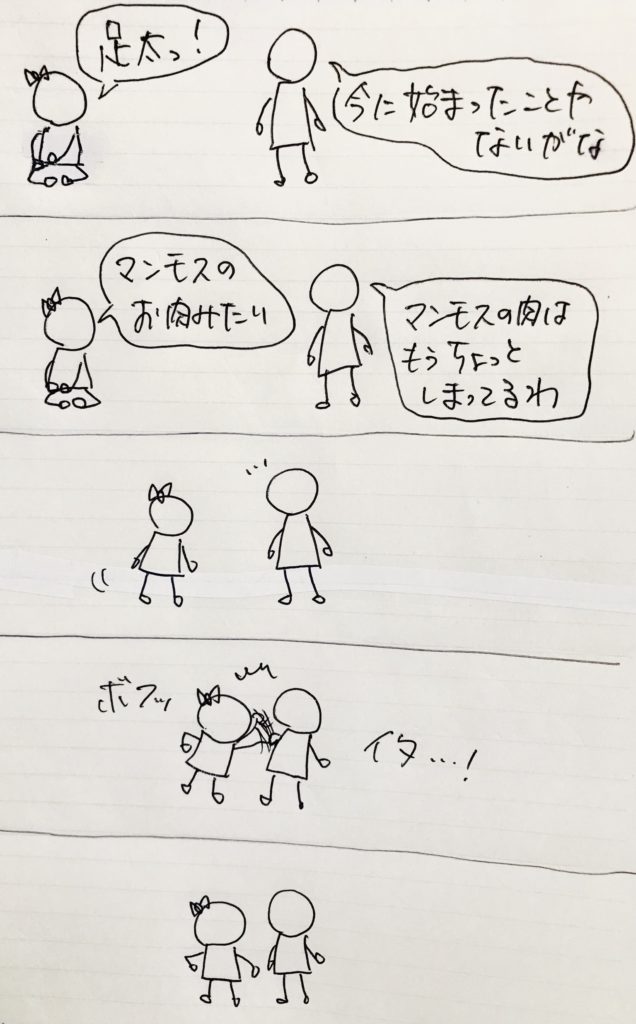 足太っ!
今に始まったことや
ないがな
マンモスの
お肉みたい
マンモスの肉は
もうちょっと
しまってるわ
ボフッ
イタ…!